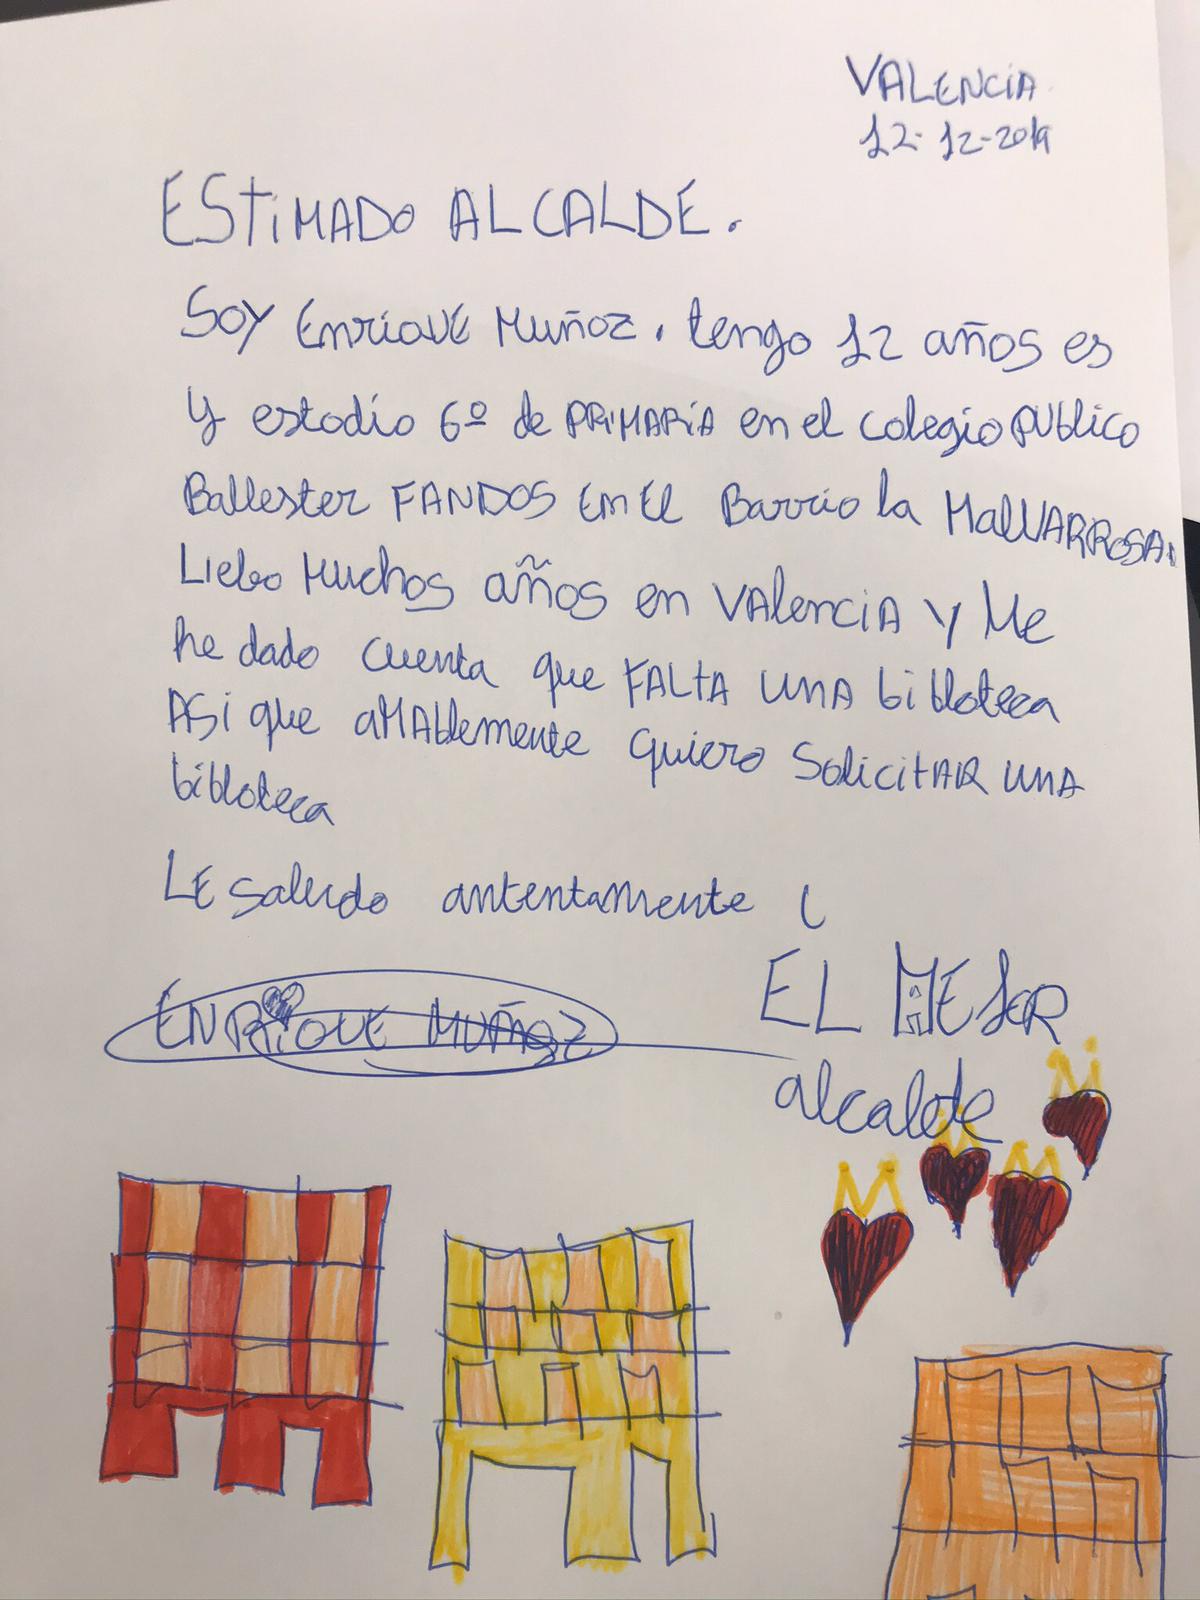 VALENCIA
12-12-2019
ESTIMADO ALCALDE.
Soy Enrique Muñoz. tengo 12 años es
y estodio 6º de PRIMARIA en el colegio PUblico
Ballester FANDOS En El Barrio la MalVARROSA.
Liebo Muchos años en VAlenciA y Me
he dado cuenta que FALTA UNA bibloteca
ASi que aMAblemente quiero SolicitAR UNA
bibloteca
LE saludo antentamente (
ENRIQUE MUÑOZ
EL MEJOR
alcalde